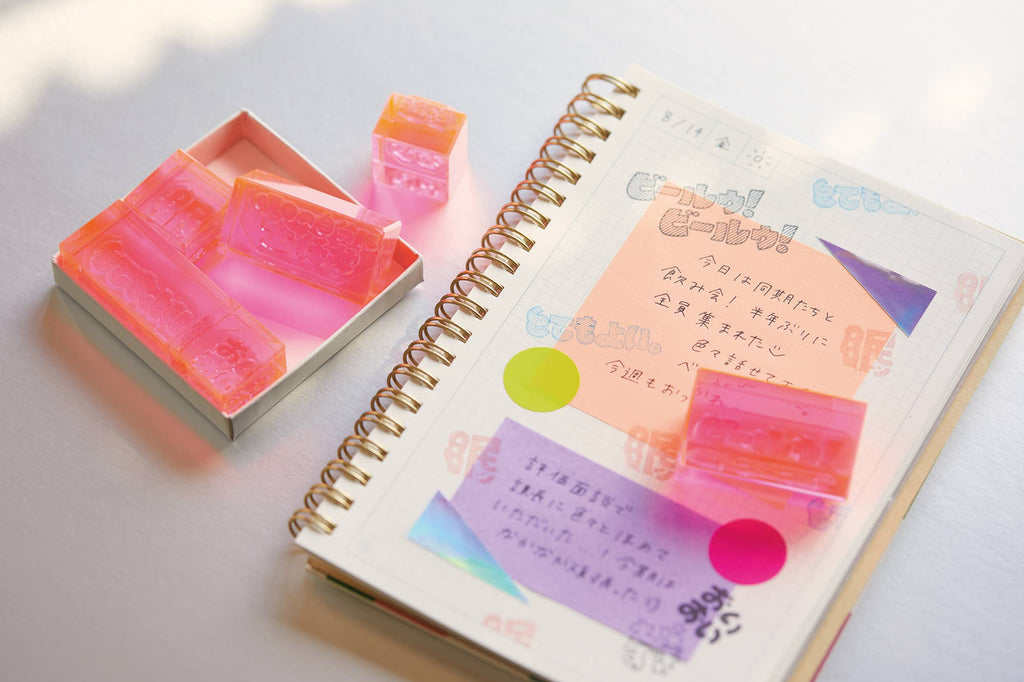 8/14 金
ビールゥ!
ビールゥ!
とてもよ
今日は同期たちと
飲み会! 半年ぶりに
全員集まれた
色々話せて
今週もおつかれ
とてもよい。
眠
眠
眠
眠
眠
評価面談で
課長に色々とほめて
いただいた…! 今期は
なかなか頑張った
おい
おい